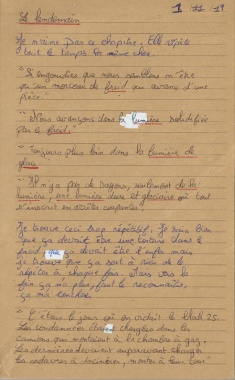 1/11/19
Le lendemain
Je n'aime pas ce chapitre. Elle répète
tout le temps la même chose.
" Si engourdies que nous semblions n'être
qu'un morceau de froid qui avance d'une
pièce "
" Nous avançons dans la lumière solidifiée
par le froid. "
" Toujours plus loin dans la lumière de
glace "
" Il n'y a pas de wagons, seulement de la
lumière, une lumière dure et glaciale où tout
s'inscrit en arêtes coupantes "
Je trouve ceci trop répétitif. Je sais bien
que ça devait être une torture dans le
froid que ça devait être l'enfer mais
je trouve que ça sert à rien de le
répéter à chaque fois. Mais vers la
fin ça m'a plu, faut le reconnaître,
ça m'a
" C'était le jour où on vidait le block 25.
Les condamnées étaient chargées dans les
camions qui montaient à la chambre à gaz.
Les dernières devaient auparavant charger
les cadavres à incinérer, monter à leur tour